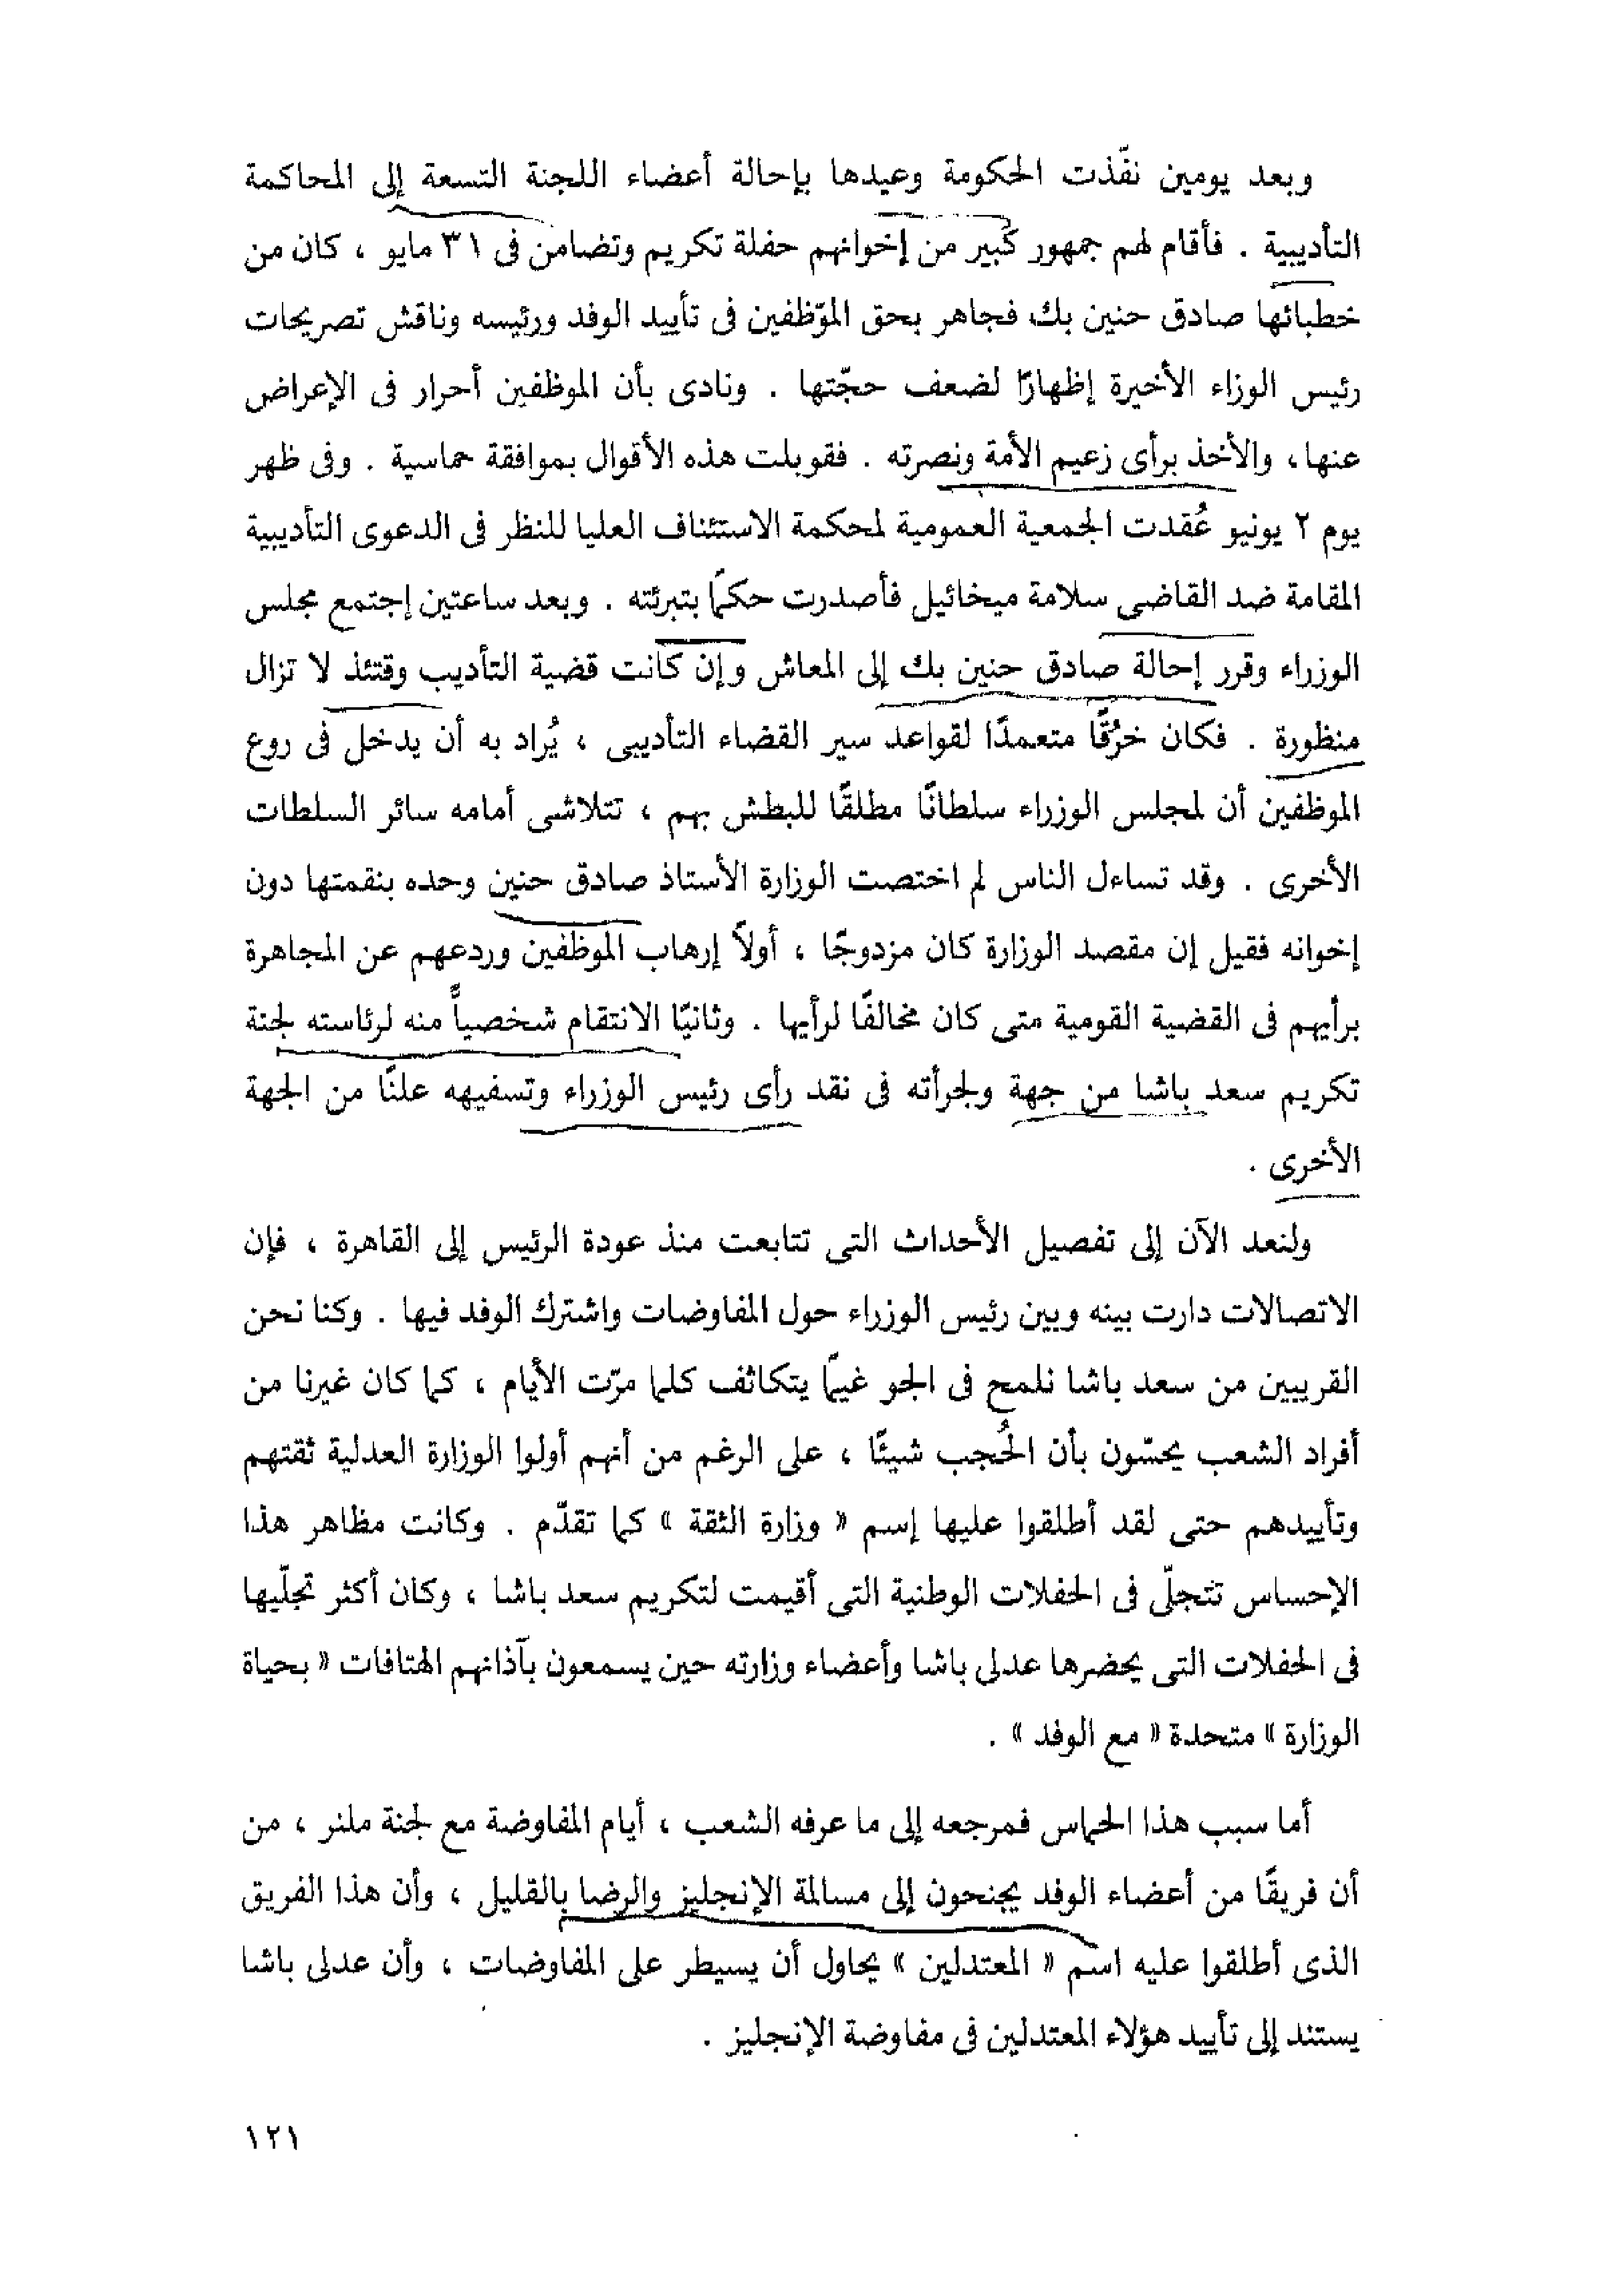 وبعد يومين نفّذت الحكومة وعيدها بإحالة أعضاء اللجنة التسعة إلى المحاكمة
التأديبية . فأقام لهم جمهور كبير من إخوانهم حفلة تكريم وتضامن فى ٣١ مايو ، كان من
خطبائها صادق حنين بك فجاهر بحق الموّظفين فى تأييد الوفد ورئيسه وناقش تصريحات
رئيس الوزاء الأخيرة إظهارًا لضعف حجّتها . ونادى بأن الموظفين أحرار فى الإعراض
عنها، والأخذ برأى زعيم الأمة ونصرته . فقوبلت هذه الأقوال بموافقة حماسية . وفى ظهر
يوم ٢ يونيو عُقدت الجمعية العمومية لمحكمة الاستئناف العليا للنظر فى الدعوى التأديبية
المقامة ضد القاضى سلامة ميخائيل فأصدرت حكمًا بتبرئته . وبعد ساعتين إجتمع مجلس
الوزراء وقرر إحالة صادق حنين بك إلى المعاش وإن كانت قضية التأديب وقتئذ لا تزال
منظورة . فكان خرُقًا متعمدًا لقواعد سير القضاء التأديبى ، يُراد به أن يدخل فى روع
الموظفين أن لمجلس الوزراء سلطانًا مطلقًا للبطش بهم ، تتلاشى أمامه سائر السلطات
الأخرى . وقد تساءل الناس لم اختصت الوزارة الأستاذ صادق حنين وحده بنقمتها دون
إخوانه فقيل إن مقصد الوزارة كان مزدوجًا ، أولاً إرهاب الموظفين وردعهم عن المجاهرة
برأيهم فى القضية القومية متى كان مخالفًا لرأيها . وثانيًا الانتقام شخصياً منه لرئاسته لجنة
تكريم سعد باشا من جهة ولجرأته فى نقد رأى رئيس الوزراء وتسفيهه علنًا من الجهة
الأخرى .
ولنعد الآن إلى تفصيل الأحداث التى تتابعت منذ عودة الرئيس إلى القاهرة ، فإن
الاتصالات دارت بينه وبين رئيس الوزراء حول المفاوضات واشترك الوفد فيها . وكنا نحن
القريبين من سعد باشا نلمح فى الجو غيمًا يتكاثف كلما مرّت الأيام ، كما كان غيرنا من
أفراد الشعب يحسّون بأن الحُجب شيئًا ، على الرغم من أنهم أولوا الوزارة العدلية ثقتهم
وتأييدهم حتى لقد أطلقوا عليها إسم « وزارة الثقة » كما تقدّم . وكانت مظاهر هذا
الإحساس تتجلّى فى الحفلات الوطنية التى أقيمت لتكريم سعد باشا ، وكان أكثر تجلّيها
فى الحفلات التى يحضرها عدلى باشا وأعضاء وزارته حين يسمعون بآذانهم الهتافات « بحياة
الوزارة » متحدة « مع الوفد » .
أما سبب هذا الحماس فمرجعه إلى ما عرفه الشعب ، أيام المفاوضة مع لجنة ملنر ، من
أن فريقًا من أعضاء الوفد يجنحون إلى مسالمة الإنجليز والرضا بالقليل ، وأن هذا الفريق
الذى أطلقوا عليه اسم « المعتدلين » يحاول أن يسيطر على المفاوضات ، وأن عدلى باشا
يستند إلى تأييد هؤلاء المعتدلين فى مفاوضة الإنجليز .
١٢١